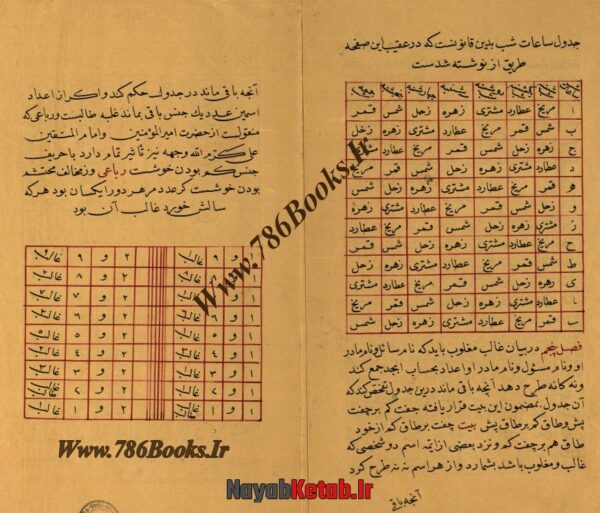 جدول ساعات شب بدین قانونست که در عقیب این صفحه
طریق از نوشته شدست
ا مریخ عطارد مشتری زهره زحل شمس قمر
ب شمس قمر مریخ عطارد مشتری زهره زحل
ج زهره زحل شمس قمر مریخ عطارد
د عطارد مشتری زهره زحل شمس قمر مریخ
ه قمر مریخ عطارد مشتری زهره زحل شمس
و زحل شمس قمر مریخ عطارد مشتری زهره
ز مشتری زهره زحل شمس قمر مریخ عطارد
ح مریخ عطارد مشتری زهره زحل شمس قمر
ط شمس قمر مریخ عطارد مشتری زهره زحل
ی زهره زحل شمس قمر مریخ عطارد مشتری
یا عطارد مشتری زهره زحل شمس قمر مریخ
یب قمر مریخ عطارد مشتری زهره زحل شمس
فصل پنجم در بیان غالب مغلوب باید که نام سائل و نام مادر
او و نام مسئول و نام مادر او اعداد بحساب ابجد جمع کند
و نه کانه طرح دهد آنچه باقی ماند درین جدول تفحص کند که
آن جدول بمضمون این بیت قرار یافته جفت کم بر جفت
بیش و طاق کم بر طاق بیش بیت جفت بر طاق کم از خود
طاق هم بر جفت کم و نزد بعضی از ائمه اسم دو شخصی که
غالب و مغلوب باشد بشمارد و از هر اسم نه نه طرح کرد
آنچه باقی
آنچه باقی ماند در جدول حکم کند و اکر از اعداد
اسمین عدد یك جنس باقی بماند غلبه طالبست و رباعی که
منقولست از حضرت امیر المؤمنین و امام المتقین
علی کرم الله وجهه نیز تاثیر تمام دارد با حریف
جنس کم بودن خوشست رباعی وز مخالف محتشم
بودن خوشست کر عدد در هر دور ایکسان بود هر که
سالش خورد غالب آن بود
۱ و ۹ غالب ۲ و ۹ غالب
۱ و ۸ غالب ۲ و ۸ غالب
۱ و ۷ غالب ۲ و ۷ غالب
۱ و ۶ غالب ۲ و ۶ غالب
۱ و ۵ غالب ۲ و ۵ غالب
۱ و ۴ غالب ۲ و ۴ غالب
۱ و ۳ غالب ۲ و ۳ غالب
۱ و ۲ غالب ۲ و ۲
۱ و ۱ ۲ و ۱ غالب
Www.786Books.Ir
Www.786Books.Ir
NayabKetab.Ir